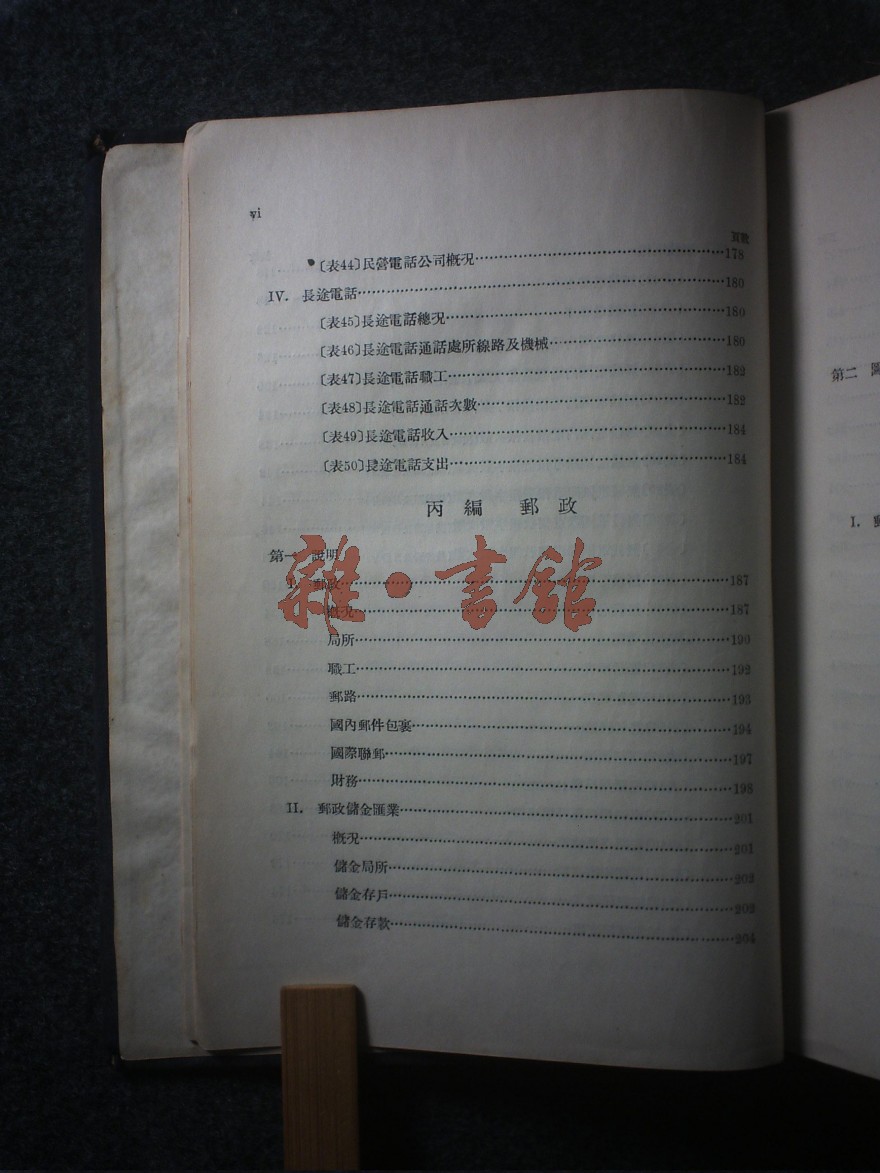 vi
頁數
〔表44〕民營電話公司概况……178
IV. 長途電話……180
〔表45〕長途電話總况……180
〔表46〕長途電話通話處所線路及機械……180
〔表47〕長途電話職工……182
〔表48〕長途電話通話次數……182
〔表49〕長途電話收入……184
〔表50〕長途電話支出……184
丙編 郵政
第一 說明
I. 郵政……187
概况……187
局所……190
職工……192
郵路……193
國內郵件包裹……194
國際聯郵……197
財務……198
II. 郵政儲金匯業……201
概况……201
儲金局所……202
儲金存戶……203
儲金存款……204
雜·書館
第二
I.